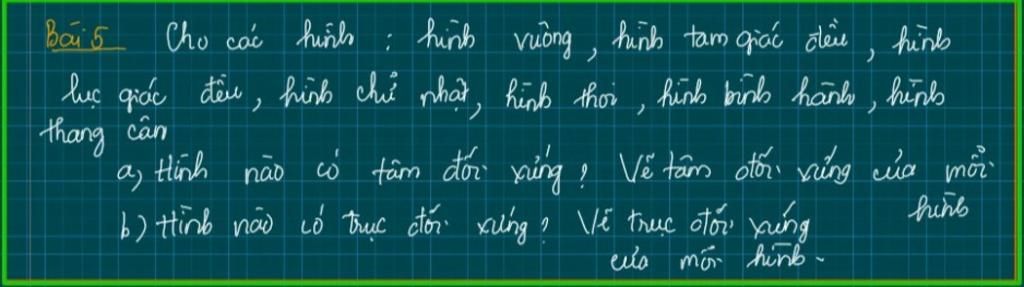 Bài 5 Cho các hình : hình vuông, hình tam giác đều, hình
lục giác đều, hình chữ nhật, hình thoi, hình bình hành, hình
thang cân
a) Hình nào có tâm đối xứng? Vẽ tâm đối xứng của mỗi
hình
b) Hình nào có trục đối xứng? Vẽ trục đối xứng
của mỗi hình.